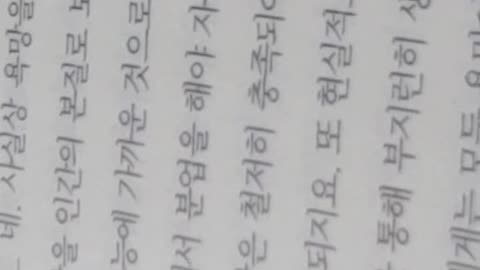 네. 사실상 욕망을
을 인간의 본질로
능에 가까운 것으로
서 분업을 해야 자
은 철저히 충족되
되지요. 또 현실적
통해 부지런히
에게는 모든 욕망